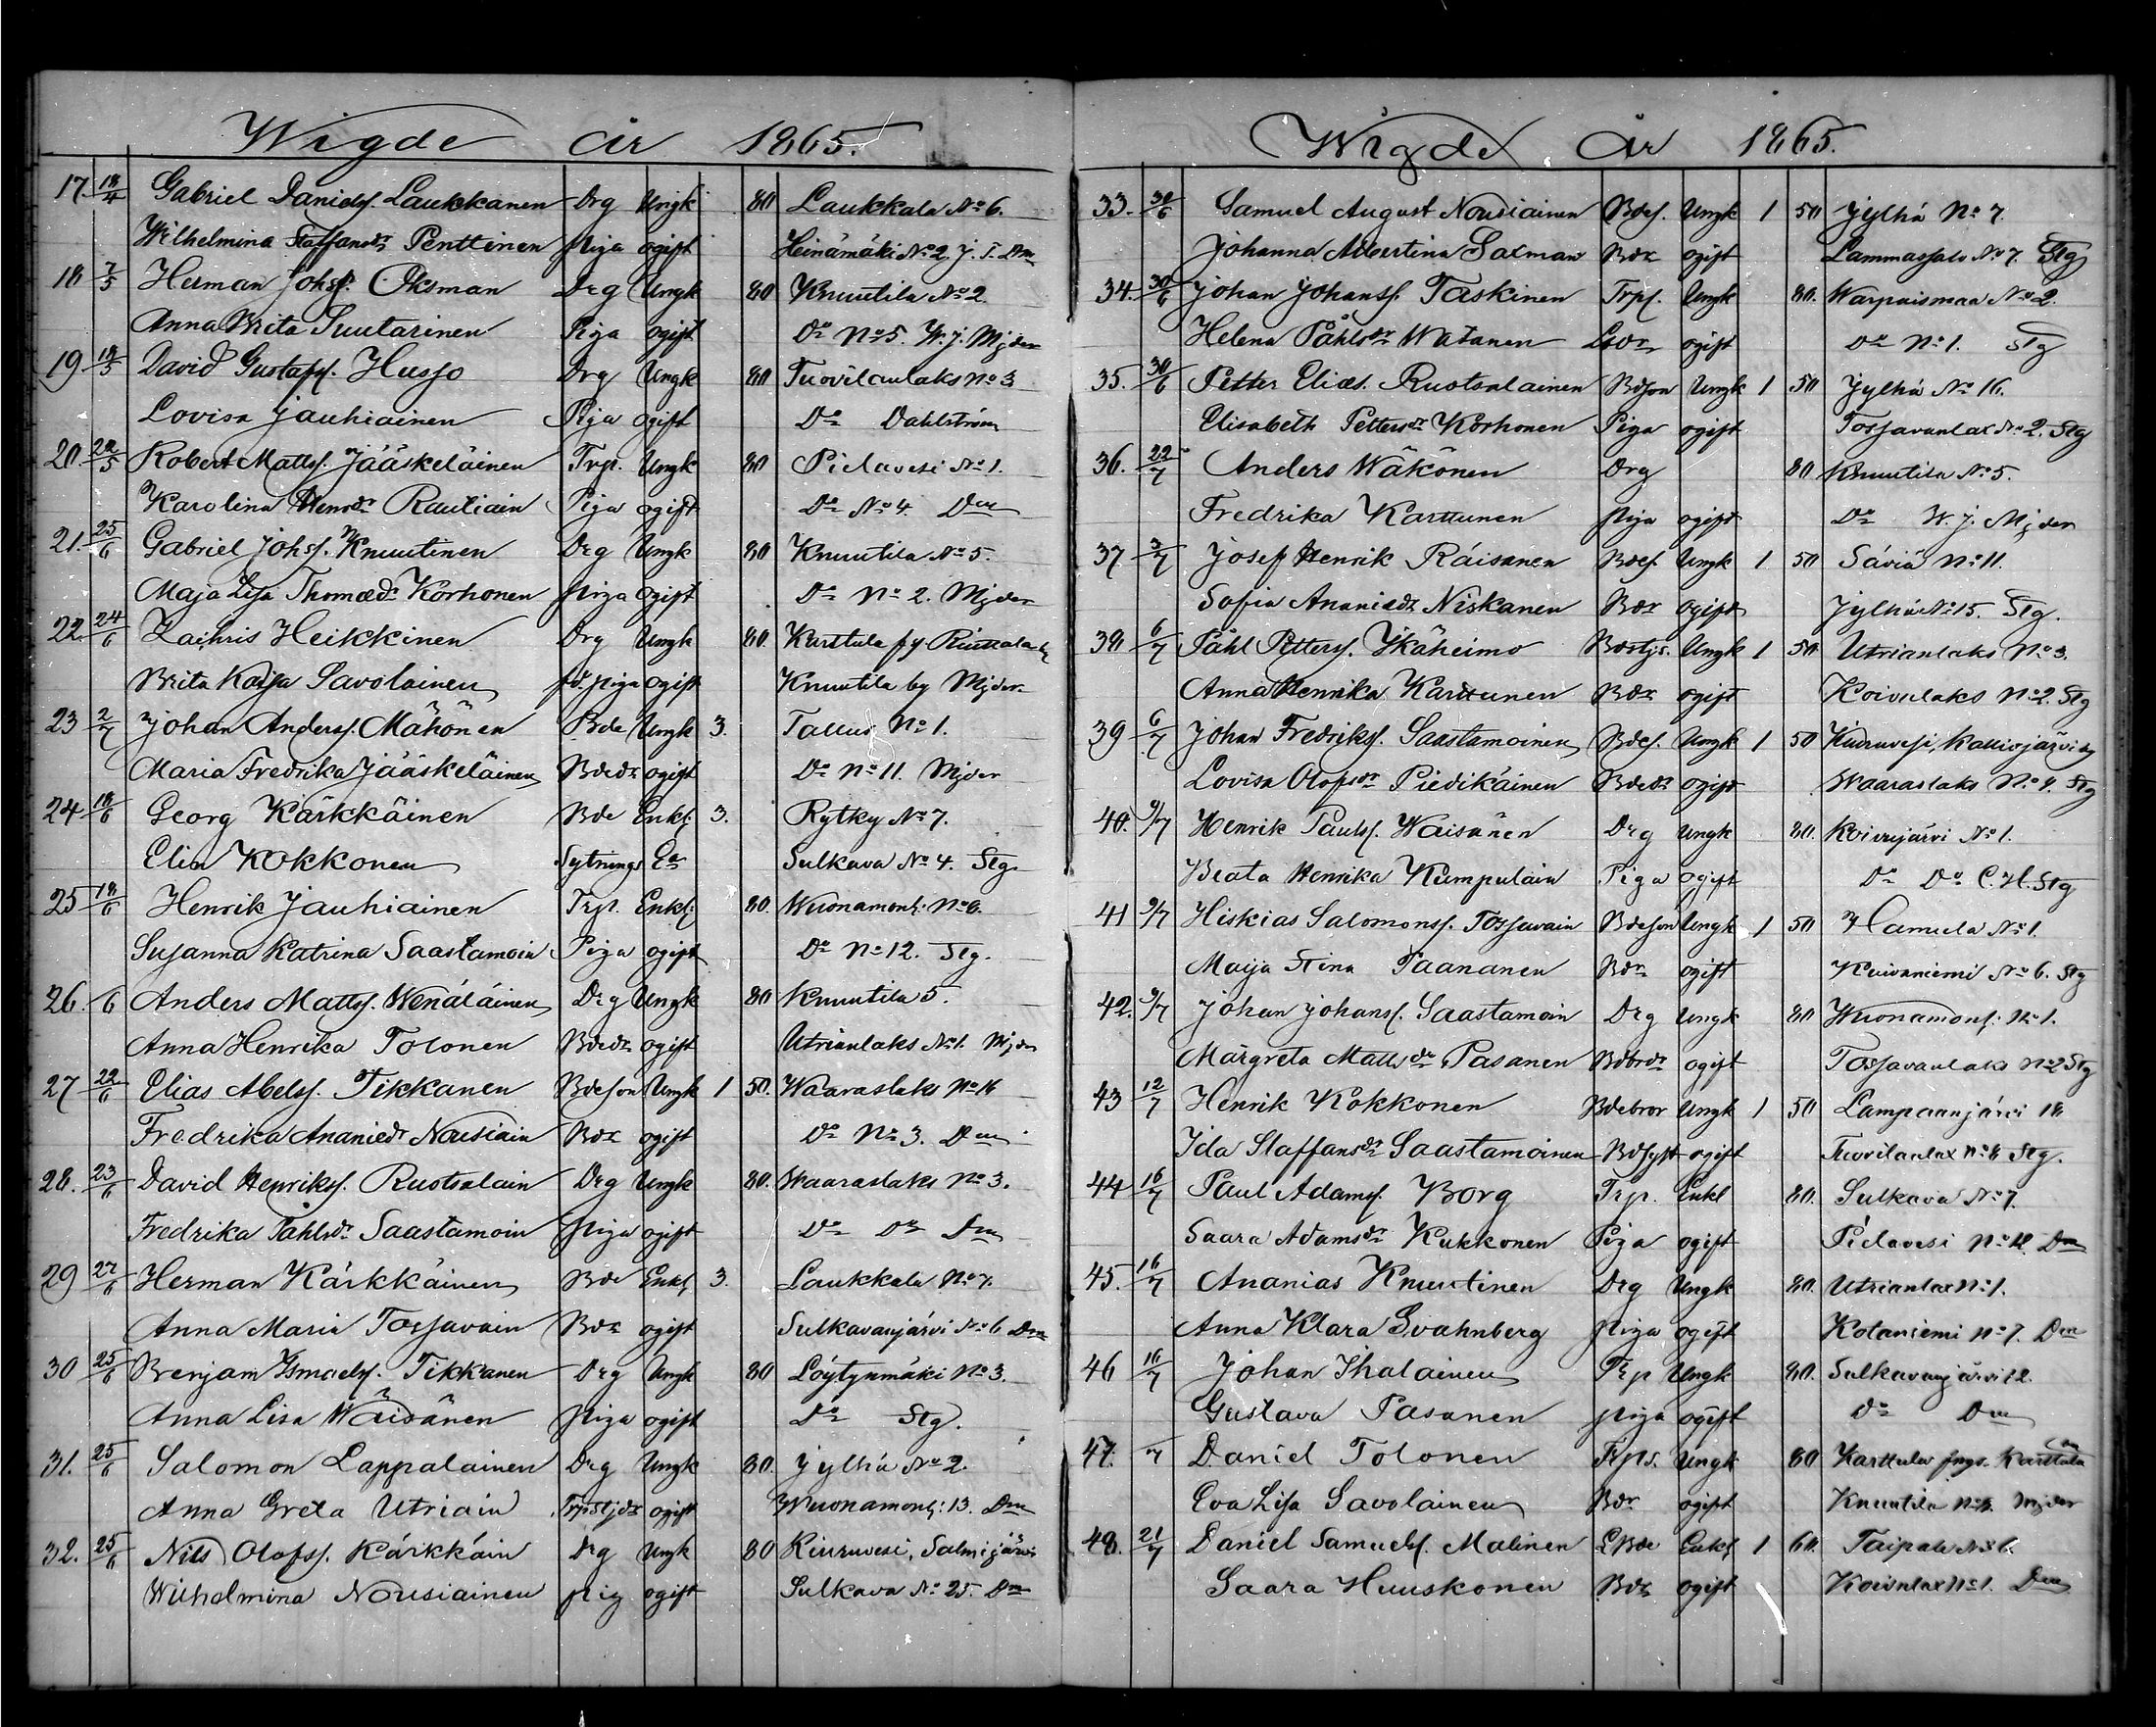 Wigde år 1865.
17. 18/4 Gabriel Daniels. Laukkanen Drg Ungk 80 Laukkala No 6.
Wilhelmina Staffansdr Penttinen piga ogift Heinämäki No 2. J. I. Dm
18 7/5 Herman Johss. Oksman Drg Ungk 80 Knuutila No 2.
Anna Brita Suutarinen Piga ogift Do No 5. W. J. Mjder
19 18/5 David Gustafs. Husso Drg Ungk 80 Tuovilanlaks No 3
Lovisa Jauhiainen Piga ogift Do Dahlström
20. /5 Robert Matts. Jääskeläinen Trp. Ungk 80 Pielavesi No 1.
Karolina Henrdr Rautiain Piga ogift Do No 4. Dm
21. 25/6 Gabriel Johss. Knuutinen Drg Ungk 80 Knuutila No 5.
Maja Lisa Thomædr Korhonen piga ogift Do No 2. Mjder
22. 24/6 Zachris Heikkinen Drg Ungk 80. Karttula
Brita Kaisa Savolainen fd. piga ogift Knuutila by Mjder
23 2/7 Johan Anderss. Mähönen Bde Ungk 3. Tallus No 1.
Maria Fredrika Jääskeläinen Bdedr ogift Do No 11. Mjder
24 18/6 Georg Kärkkäinen Bde Enkl: 3. Rytky No 7.
Elin Kokkonen Sytnings Ea Sulkava No 4. Stg
25 18/6 Henrik Jauhiainen Trp. Enkl: 80. Wuonamonl: No 6.
Susanna Katrina Saastamoin Piga ogift Do No 12. Stg.
26. 6 Anders Matts. Wenäläinen Drg Ungk 80 Knuutila 5.
Anna Henrika Tolonen Bdedr ogift Utrianlaks No 1. Mjder
27 22/6 Elias Abels. Tikkanen Bdeson Ungk 1 50. Waaraslaks No 16
Fredrika Ananiedr Nousiain Bdr ogift Do No 3. Dm
28. 23/6 David Henrikss. Ruotsalain Drg Ungk 80. Waaraslaks No 3.
Fredrika Påhlsdr Saastamoin piga ogift Do Do Dm
29 /6 Herman Kärkkäinen Bde Enkl 3. Laukkala No 7.
Anna Maria Tossavain Bdr ogift Sulkavanjärvi No 6 Dm
30 25/6 Benjam Ismaels. Tikkanen Drg Ungk 80 Löytynmäki No 3.
Anna Lisa Wäisänen piga ogift Do Stg.
31. 25/6 Salomon Lappalainen Drg Ungk 80. Jylhä No 2.
Anna Greta Utriain Trpstjdr ogift Wuonamonl: 13. Dm
32. 25/6 Nils Olofss. Kärkkäin Drg Ungk 80 Kiuruvesi, Salmijärvi
Wilhelmina Nousiainen pig ogift Sulkava No 25. Dm
Wigde år 1865.
33. 30/6 Samuel August Nousiainen Bdes. Ungk 1 50 Jylhä No 7.
Johanna Albertina Saxman Bdr ogift Lammassalo No 7. Stg
34. 30/6 Johan Johanss. Taskinen Trps. Ungk 80. Warpaismaa No 2.
Helena Påhlsdr Watanen Lsdr ogift Do No 1. Stg
35. 30/6 Petter Elias. Ruotsalainen Bdson Ungk 1 50 Jylhä No 16.
Elisabeth Pettersdr Korhonen Piga ogift Tossavanlax No 2. Stg
36. 22/7 Anders Wäkönen Drg 80 Knuutila No 5.
Fredrika Karttunen piga ogift Do W. J. Mjder
37 3/7 Josef Henrik Räisanen Bdes. Ungk 1 50 Säviä No 11.
Sofia Ananiedr Niskanen Bdr ogift Jylhä No 15. Stg.
38 6/7 Påhl Petterss. Ikäheimo Bdestjs. Ungk 1 50 Utrianlaks No 3.
Anna Henrika Karttunen Bdr ogift Koivulaks No 2. Stg
39 6/7 Johan Fredrikss. Saastamoinen Bdes. Ungk 1 50 Kiuruvesi, Kalliojärvi
Lovisa Olofsdr Piedikäinen Bdedr ogift Waaraslaks No 9. Stg
40. 9/7 Henrik Paulss. Waisänen Drg Ungk 80. Koivujärvi No 1.
Beata Henrika Kumpulain Piga ogift Do Do C. H. Stg
41 9/7 Hiskias Salomonss. Tossavain Bdeson Ungk 1 50 Hamula No 1.
Maija Stina Paananen Bdr ogift ogift Koivaniemi No 6. Stg
42. 9/7 Johan Johanss. Saastamoin Drg Ungk 80 Wuonamonl: No 1.
Margreta Mattsdr Pasanen Bdbrdr ogift Tossavanlaks No 2 Stg
43 12/7 Henrik Kokkonen Bdebror Ungk 1 50 Lampaanjärvi 18
Ida Staffansdr Saastamoinen Bdsyst ogift Tuovilanlax No 8 Stg.
44 16/7 Paul Adamss. Borg Trp. Enkl 80. Sulkava No 7.
Saara Adamsdr Kukkonen Piga ogift Pielavesi No 12. Dm
45. 16/7 Ananias Knuutinen Drg Ungk 80. Utrianlax No 1.
Anna Klara Svahnberg piga ogift Kotaniemi No 7. Dm
46 16/7 Johan Ihalainen Trp Ungk 80. Sulkavanjärvi 12.
Gustava Pasanen piga ogift Do Dm
47. 7 Daniel Tolonen Trps. Ungk 80 Karttula
Eva Lisa Savolainen Bdr ogift Knuutila Mjder
48. 21/7 Daniel Samuels. Malinen LBde Enkl 1 60. Taipale No 36.
Saara Huuskonen Bdr ogift Koivulax No 1. Dm